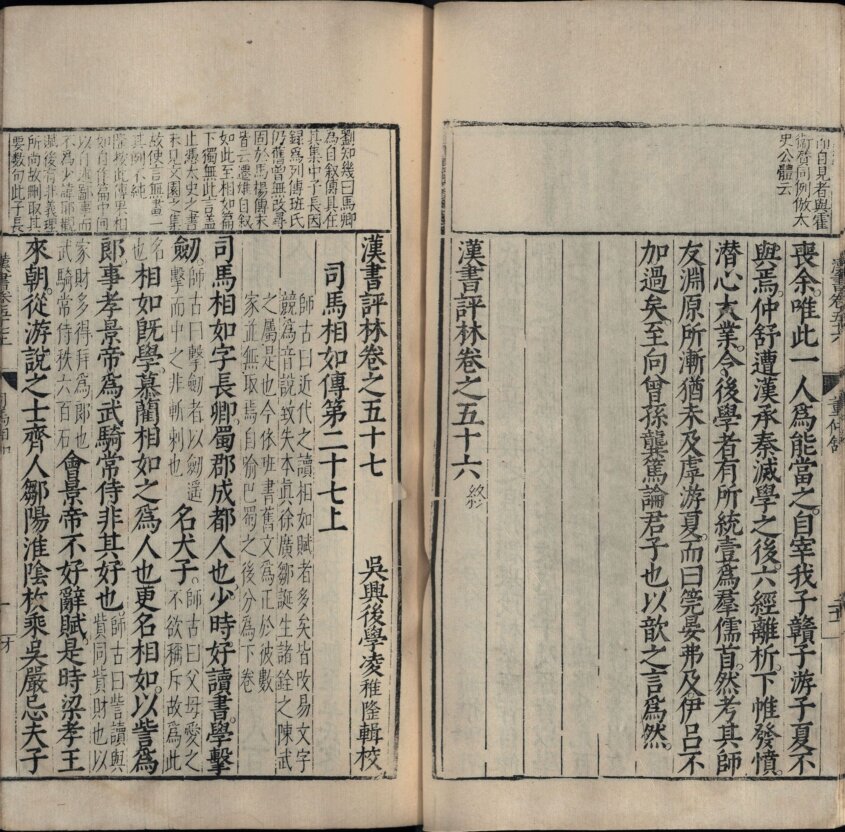 而自見者與霍
衛贊同例倣太
史公體云
喪余唯此一人爲能當之自宰我子贛子游子夏不
與焉仲舒遭漢承秦滅學之後六經離析下帷發憤
潛心大業令後學者有所統壹爲羣儒首然考其師
友淵原所漸猶未及虖游夏而曰筦晏弗及伊呂不
加過矣至向曾孫龔篤論君子也以歆之言爲然
漢書評林卷之五十六 終
漢書卷五十六 董仲舒
劉知幾曰馬卿
爲自叙傳具在
其集中子長因
録爲列傳班氏
仍舊曾無改尋
固於馬楊傳末
皆云遷雄自叙
如此至相如篇
下獨無此言蓋
止憑太史之書
未見文園之集
故使言無畫一
其例不純
隆按此傳 相
如自作篇中間
以自述 事而
不爲少諱 觀
後有非義理
所尚故刪取其
要數句此子長
漢書評林卷之五十七
吳興後學凌稚隆輯校
司馬相如傳第二十七上
師古曰近代之讀相如賦者多矣皆改易文字
競爲音說致失本眞徐廣鄒誕生諸詮之陳武
之屬是也今依班書舊文爲正於彼數
家並無取焉自喻巴蜀之後分爲下卷
司馬相如字長卿蜀郡成都人也少時好讀書學擊
劒師古曰擊劒者以劒遥擊而中之非斬刺也名犬子師古曰父母愛之不欲稱斥故爲此
名也相如既學慕藺相如之爲人也更名相如以訾爲
郎事孝景帝爲武騎常侍非其好也師古曰訾讀與貲同貲財也以
家財多得拜爲郎也武騎常侍秩六百石會景帝不好辭賦是時梁孝王
來朝從游說之士齊人鄒陽淮陰枚乘吳嚴忌夫子
漢書卷五十七上 司馬相如 一